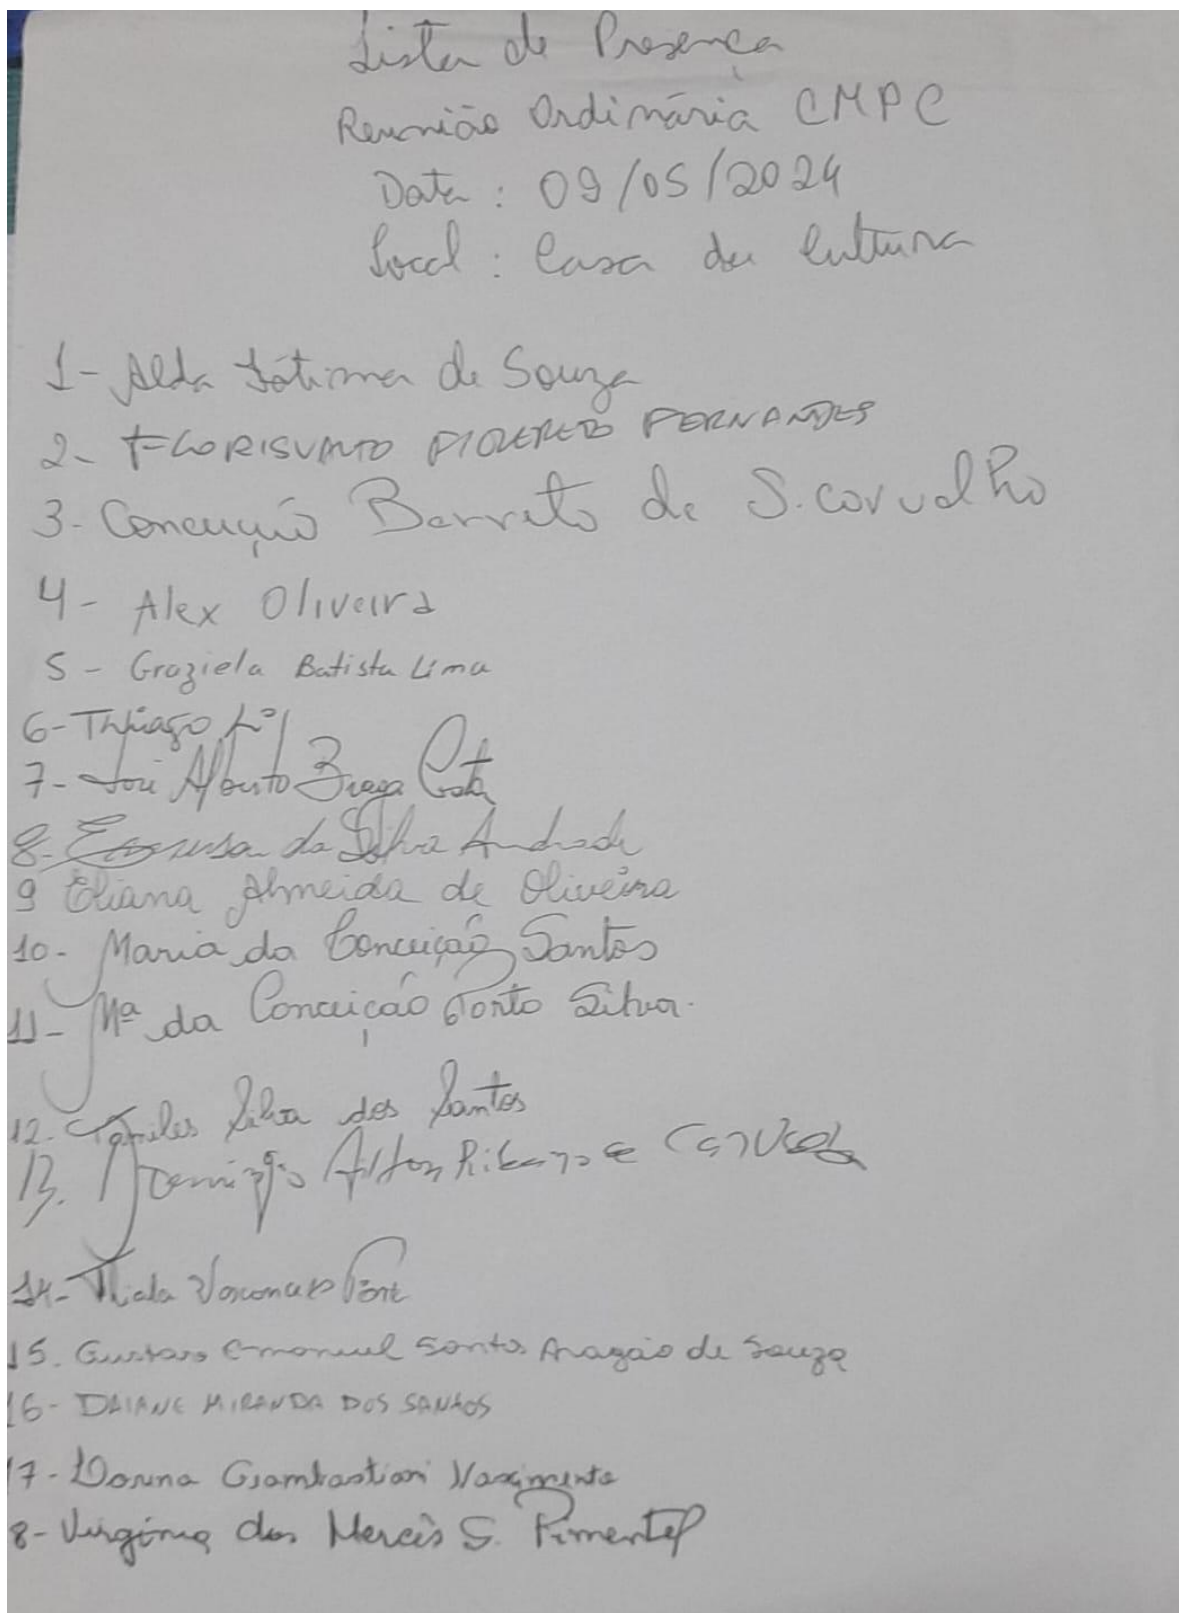 Lista de Presença
Reunião Ordinária CMPC
Data : 09/05/2024
Local : Casa da Cultura
1- Alda Fátima de Souza
2- FLORISVALDO FIGUEREDO FERNANDES
3- Conceição Barreto de S. Carvalho
4- Alex Oliveira
5- Graziela Batista Lima
6- Thiago
7- José Alberto Braga Costa
8- da Silva Andrade
9 Eliana Almeida de Oliveira
10- Maria da Conceição Santos
11- Mª da Conceição Porto Silva.
12- Silva dos Santos
13. Domingos Ailton Ribeiro
14- Vasconcelos
15. Gustavo Emanuel Santos Aragão de Souza
16- DAIANE MIRANDA DOS SANTOS
17- Nascimento
8- Virgínia das Mercês S. Pimentel